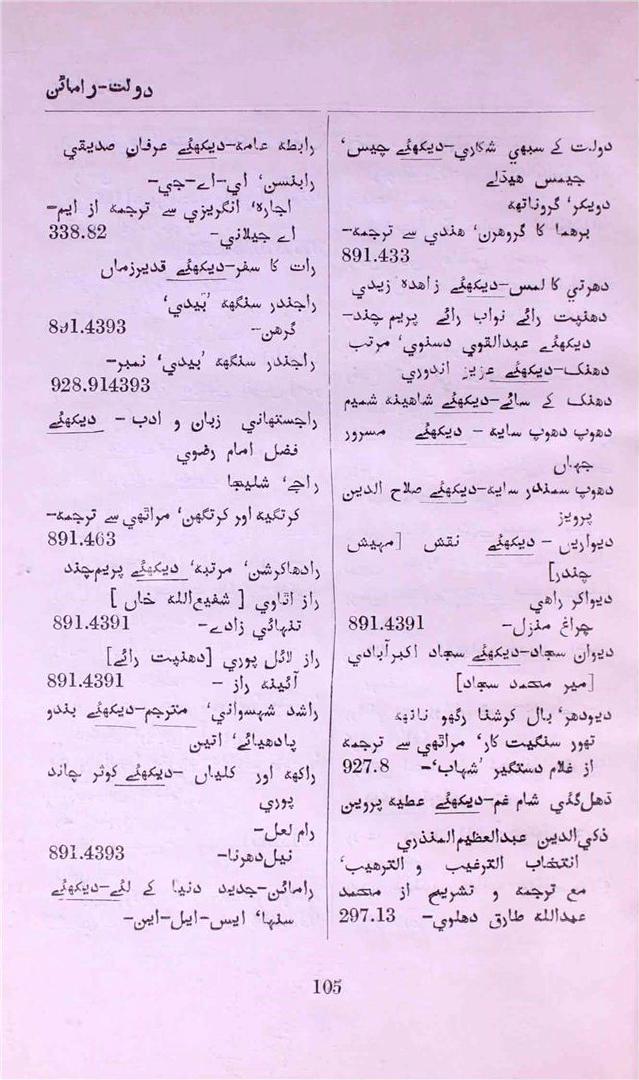 دولت-رامائن
دولت کے سبھی شکاری-دیکھئے چیس،
جیمس ہیڈلے
دویکر، گروناتھ
برہما کا گروہرن، ہندی سے ترجمہ-
891.433
دھرتی کا لمس-دیکھئے زاہدہ زیدی
دھنپت رائے نواب رائے پریم چند-
دیکھئے عبدالقوی دسنوی، مرتب
دھنک-دیکھئے عزیز اندوری
دھنک کے سائے-دیکھئے شاہینہ شمیم
دھوپ دھوپ سایہ - دیکھئے مسرور
جہاں
دھوپ سمندر سایہ-دیکھئے صلاح الدین
پرویز
دیواریں - دیکھئے نقش [مہیش
چندر]
دیواکر راہی
چراغ منزل- 891.4391
دیوان سجاد-دیکھئے سجاد اکبرآبادی
[میر محمد سجاد]
دیودھر، بال کرشنا رگھو ناتھ
تھور سنگیت کار، مراٹھی سے ترجمہ
از غلام دستگیر ’شہاب‘- 927.8
ڈھل گئی شام غم-دیکھئے عطیہ پروین
ذکی الدین عبدالعظیم المنذری
انتخاب الترغیب و الترہیب،
مع ترجمہ و تشریح از محمد
عبداللہ طارق دہلوی- 297.13
رابطہ عامہ-دیکھئے عرفان صدیقی
رابنسن، ای-اے-جی-
اجارہ، انگریزی سے ترجمہ از ایم-
اے جیلانی- 338.82
رات کا سفر-دیکھئے قدیرزماں
راجندر سنگھ ’بیدی‘
گرہن- 891.4393
راجندر سنگھ ’بیدی‘ نمبر-
928.914393
راجستھانی زبان و ادب - دیکھئے
فضل امام رضوی
راجے، شلیجا
کرتگیہ اور کرتگھن، مراٹھی سے ترجمہ-
891.463
رادھاکرشن، مرتبہ، دیکھئے پریم چند
راز اٹاوی [ شفیع اللہ خاں ]
تنہائی زادے- 891.4391
راز لائل پوری [دھنپت رائے]
آئینہ راز - 891.4391
راشد شہسوانی، مترجم-دیکھئے بندو
پادھیائے، اتین
راکھ اور کلیاں -دیکھئے کوثر چاند
پوری
رام لعل-
نیل دھرنا- 891.4393
رامائن-جدید دنیا کے لئے-دیکھئے
سنہا، ایس-ایل-این-
105